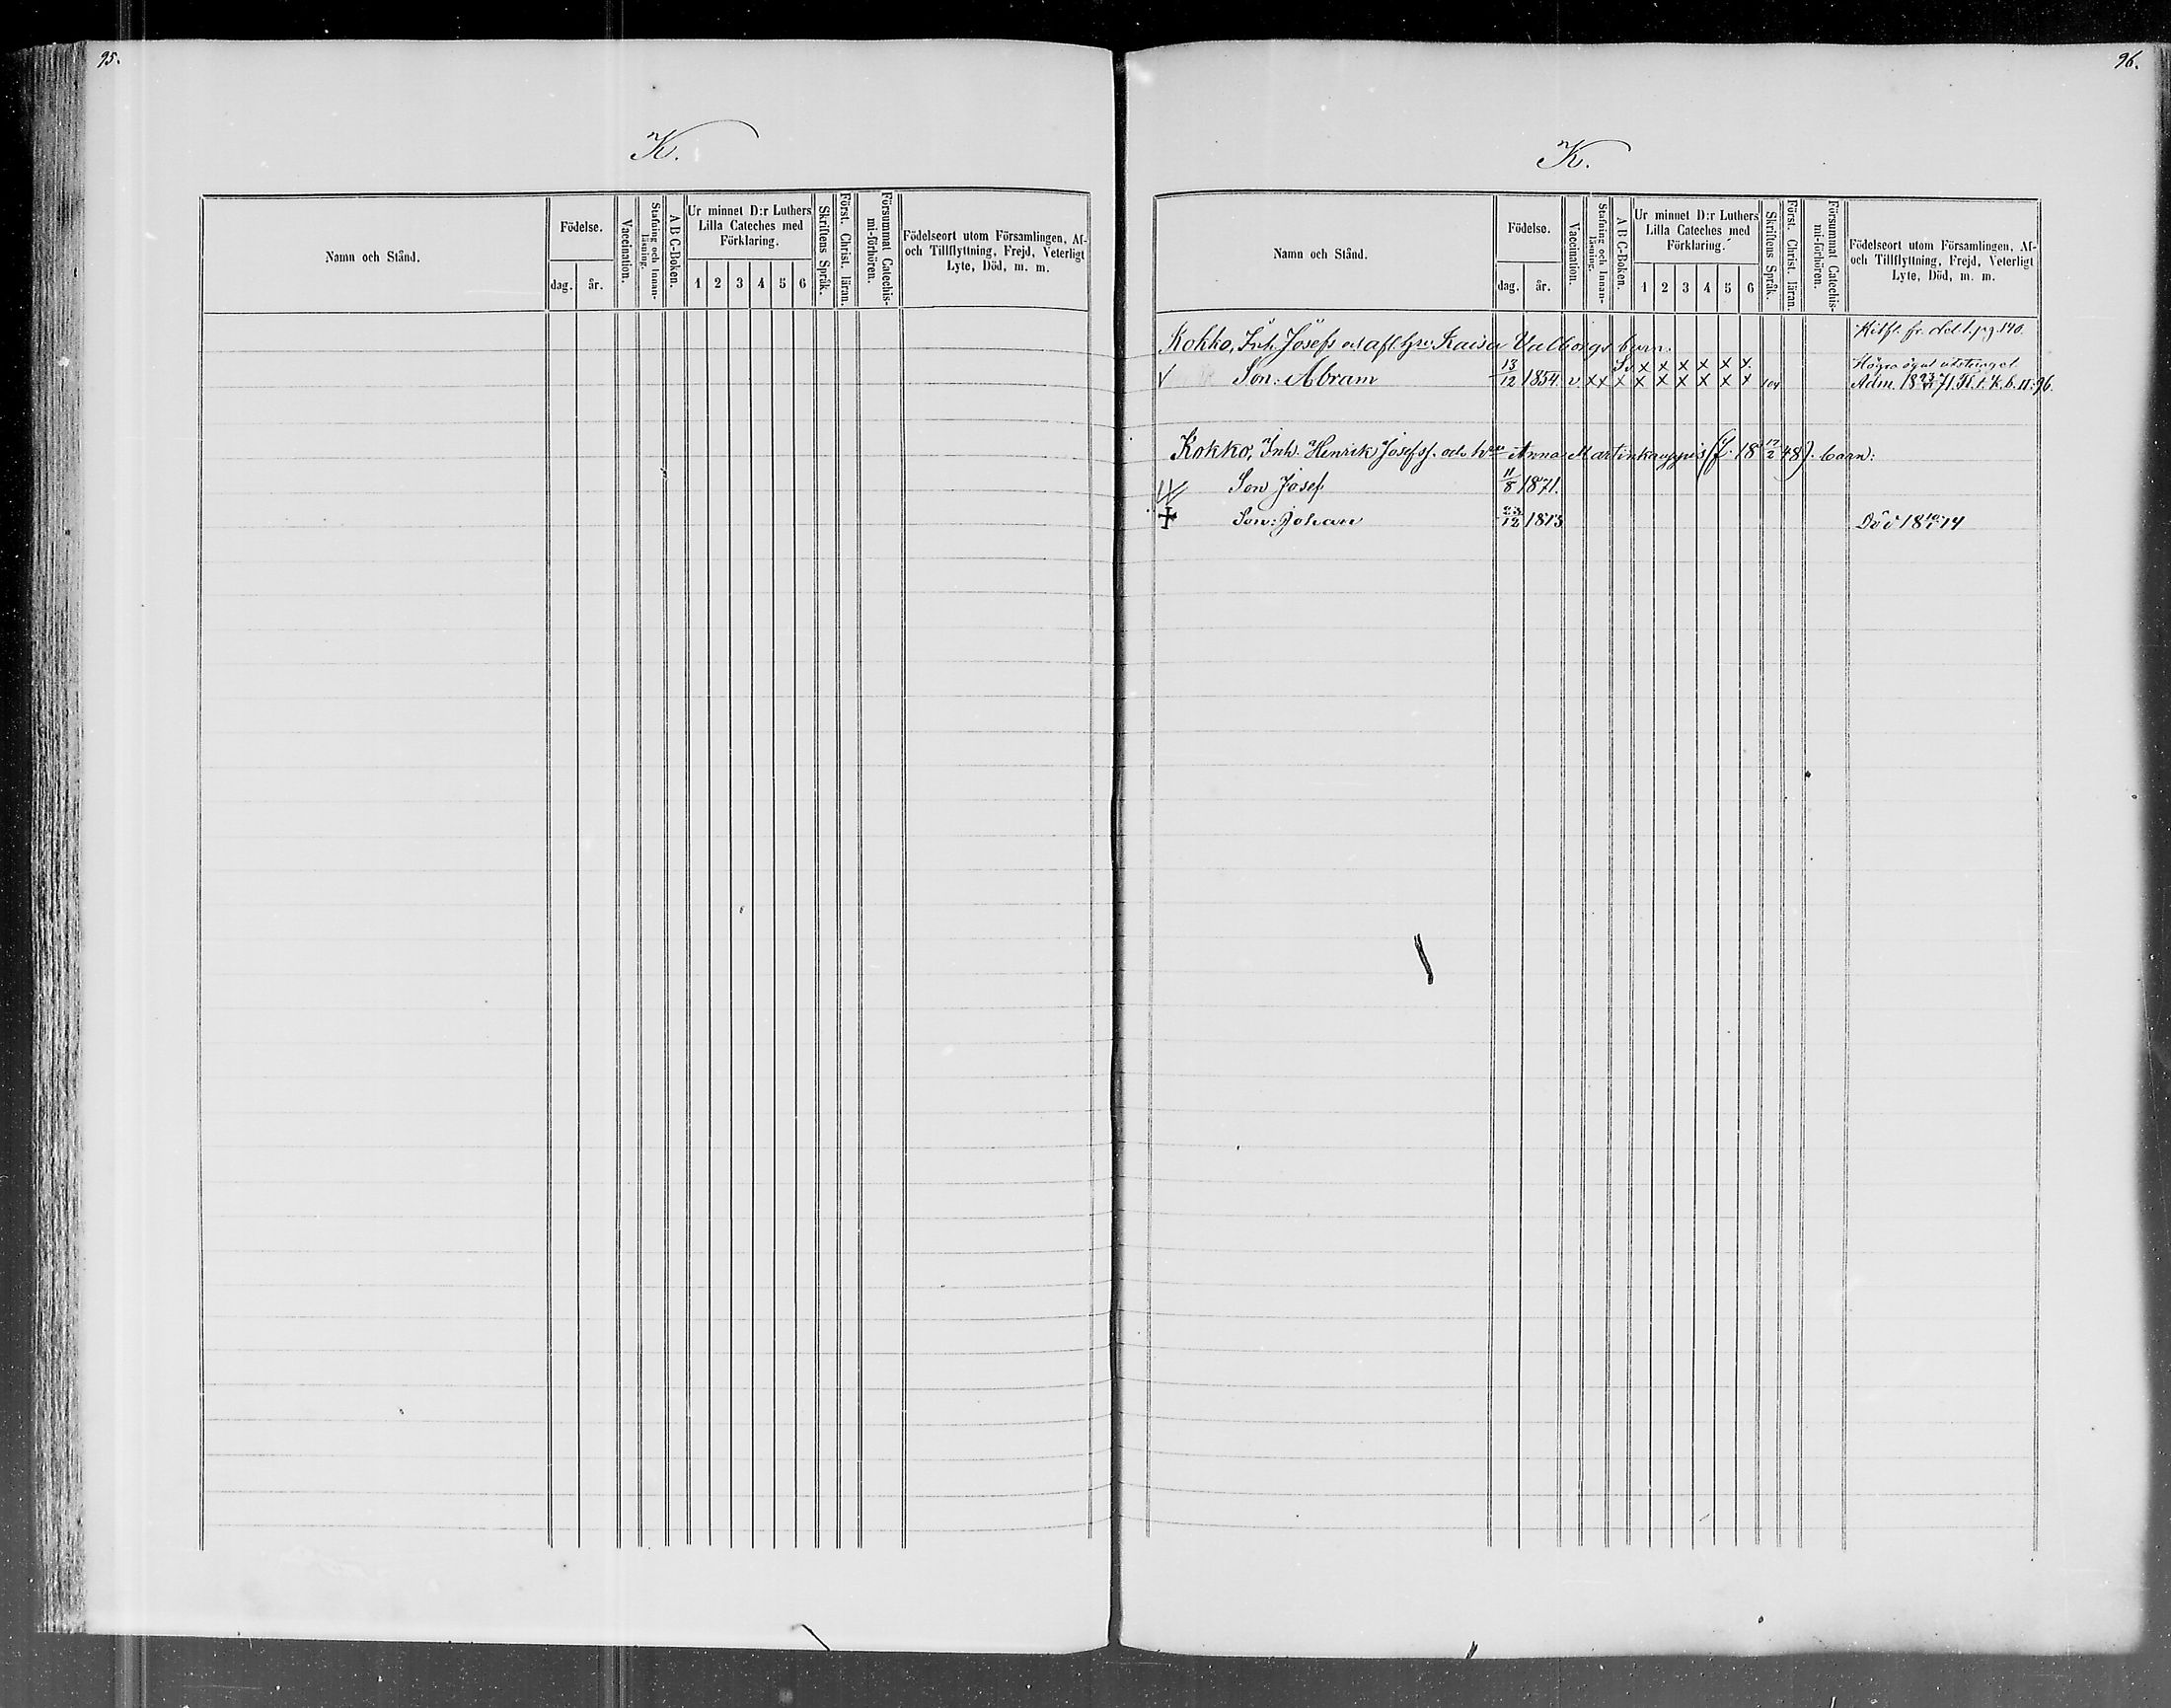 95.
K.
Namn och Stånd.
Födelse.
dag.
år.
Vaccination.
Stafning och Innan-
läsning.
A B C-Boken.
Ur minnet D:r Luthers
Lilla Cateches med
Förklaring.
1 2 3 4 5 6
Skriftens Språk.
Först. Christ. läran.
Försummat Catechis-
mi-förhören.
Födelseort utom Församlingen, Af-
och Tillflyttning, Frejd, Veterligt
Lyte, Död, m. m.
96.
K.
Namn och Stånd.
Födelse.
dag.
år.
Vaccination.
Stafning och Innan-
läsning.
A B C-Boken.
Ur minnet D:r Luthers
Lilla Cateches med
Förklaring.
1 2 3 4 5 6
Skriftens Språk.
Först. Christ. läran.
Försummat Catechis-
mi-förhören.
Födelseort utom Församlingen, Af-
och Tillflyttning, Frejd, Veterligt
Lyte, Död, m. m.
fr. del 1. pg. 140.
Kokko, Inh. Josefs Kaisa Valborgs barn:
x x x x x x Högra ögat
V Son: Abram 13/12 1854 v x x x x x x x x x Adm. 18 71. K. b. II: 96.
Kokko, Inh. Henrik Josefs. och Anna Martinkauppis (f. 18 12/2 48). barn:
Son Josef 11/8 1871.
+ Son: Johan 23/12 1873 Död 18 74